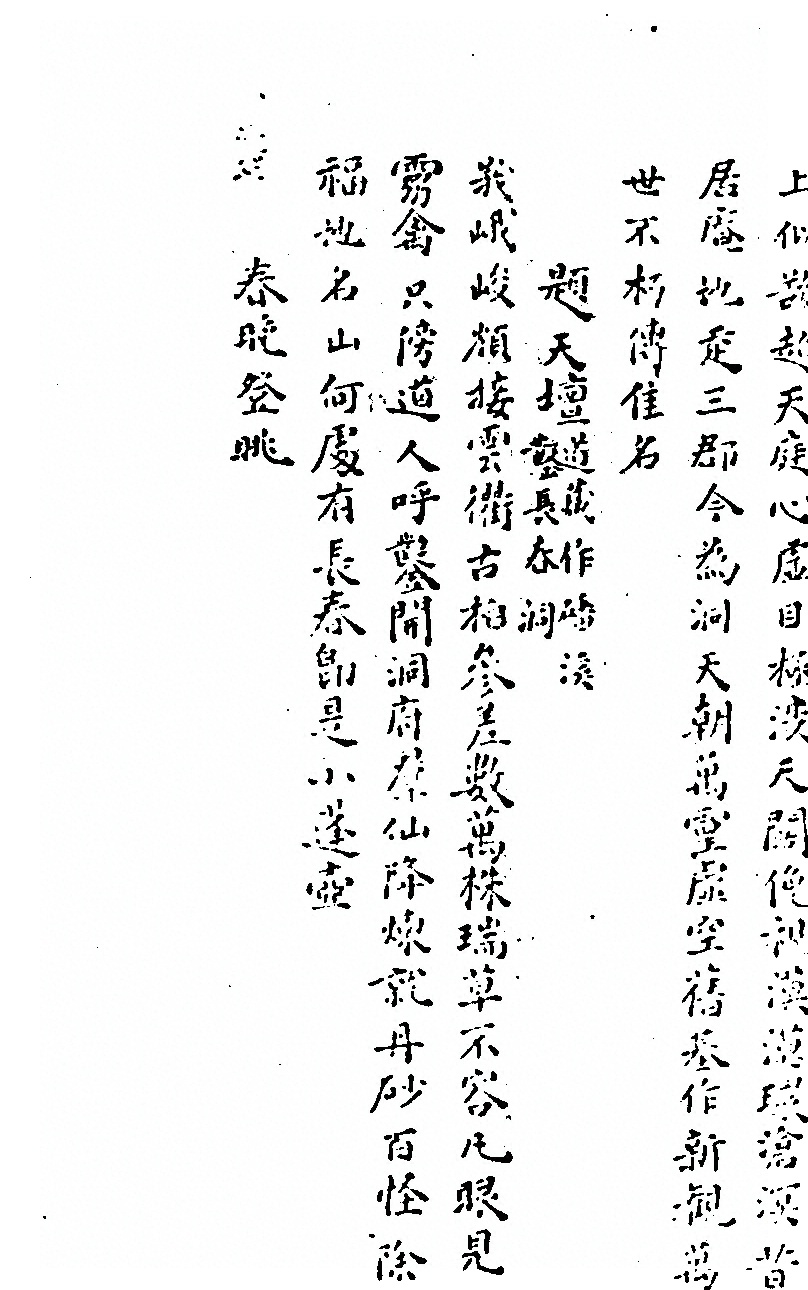 上似㪍起天庭心虛目極淡天關俛視漠漠瑛滄溟昔
居塵地定三郡今為洞天朝萬靈虛空舊基作新觀萬
世不朽傳佳名
題天壇道藏作磻溪鑿長春洞
峩峨峻嶺接雲衢古柏參差數萬株瑞草不容凡眼見
靈禽只傍道人呼鑿開洞府群仙降煉就丹砂百怪除
福地名山何處有長春即是小蓬壺
春晚登眺